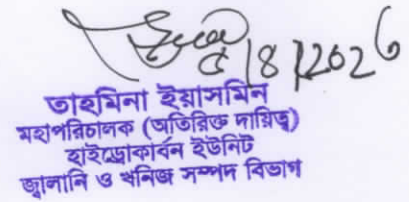 ৫/৪/2026
তাহমিনা ইয়াসমিন
মহাপরিচালক (অতিরিক্ত দায়িত্ব)
হাইড্রোকার্বন ইউনিট
জ্বালানি ও খনিজ সম্পদ বিভাগ